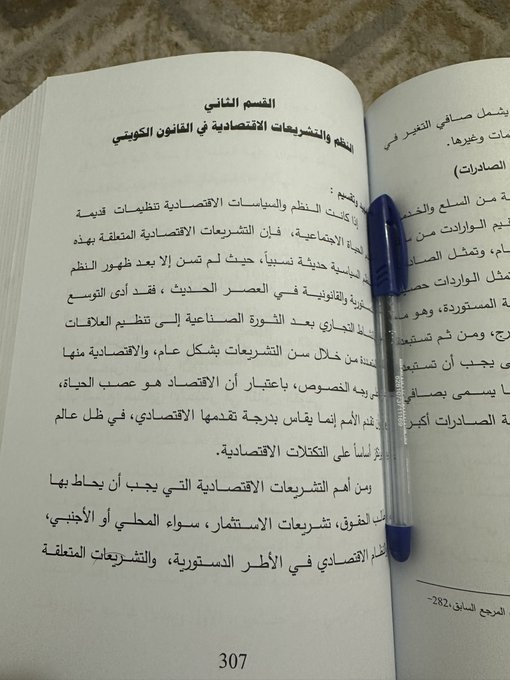 القسم الثاني
النظم والتشريعات الاقتصادية في القانون الكويتي
وتقسيم :
إذا كانت النظم والسياسات الاقتصادية تنظيمات قديمة
الحياة الاجتماعية، فإن التشريعات الاقتصادية المتعلقة بهذه
السياسية حديثة نسبياً، حيث لم تسن إلا بعد ظهور النظم
والقانونية في العصر الحديث، فقد أدى التوسع
التجاري بعد الثورة الصناعية إلى تنظيم العلاقات
من خلال سن التشريعات بشكل عام، والاقتصادية منها
وجه الخصوص، باعتبار أن الاقتصاد هو عصب الحياة،
تقدم الأمم إنما يقاس بدرجة تقدمها الاقتصادي، في ظل عالم
أساساً على التكتلات الاقتصادية.
ومن أهم التشريعات الاقتصادية التي يجب أن يحاط بها
الحقوق، تشريعات الاستثمار، سواء المحلي أو الأجنبي،
الاقتصادي في الأطر الدستورية، والتشريعات المتعلقة
307
يشمل صافي التغير في
وغيرها.
الصادرات)
ة من السلع
الواردات من
، وتمثل
تمثل الواردات
ة المستوردة، وهو
، ومن ثم
ى يجب أن
ا يسمى
ة الصادرات
المرجع السابق، 282-